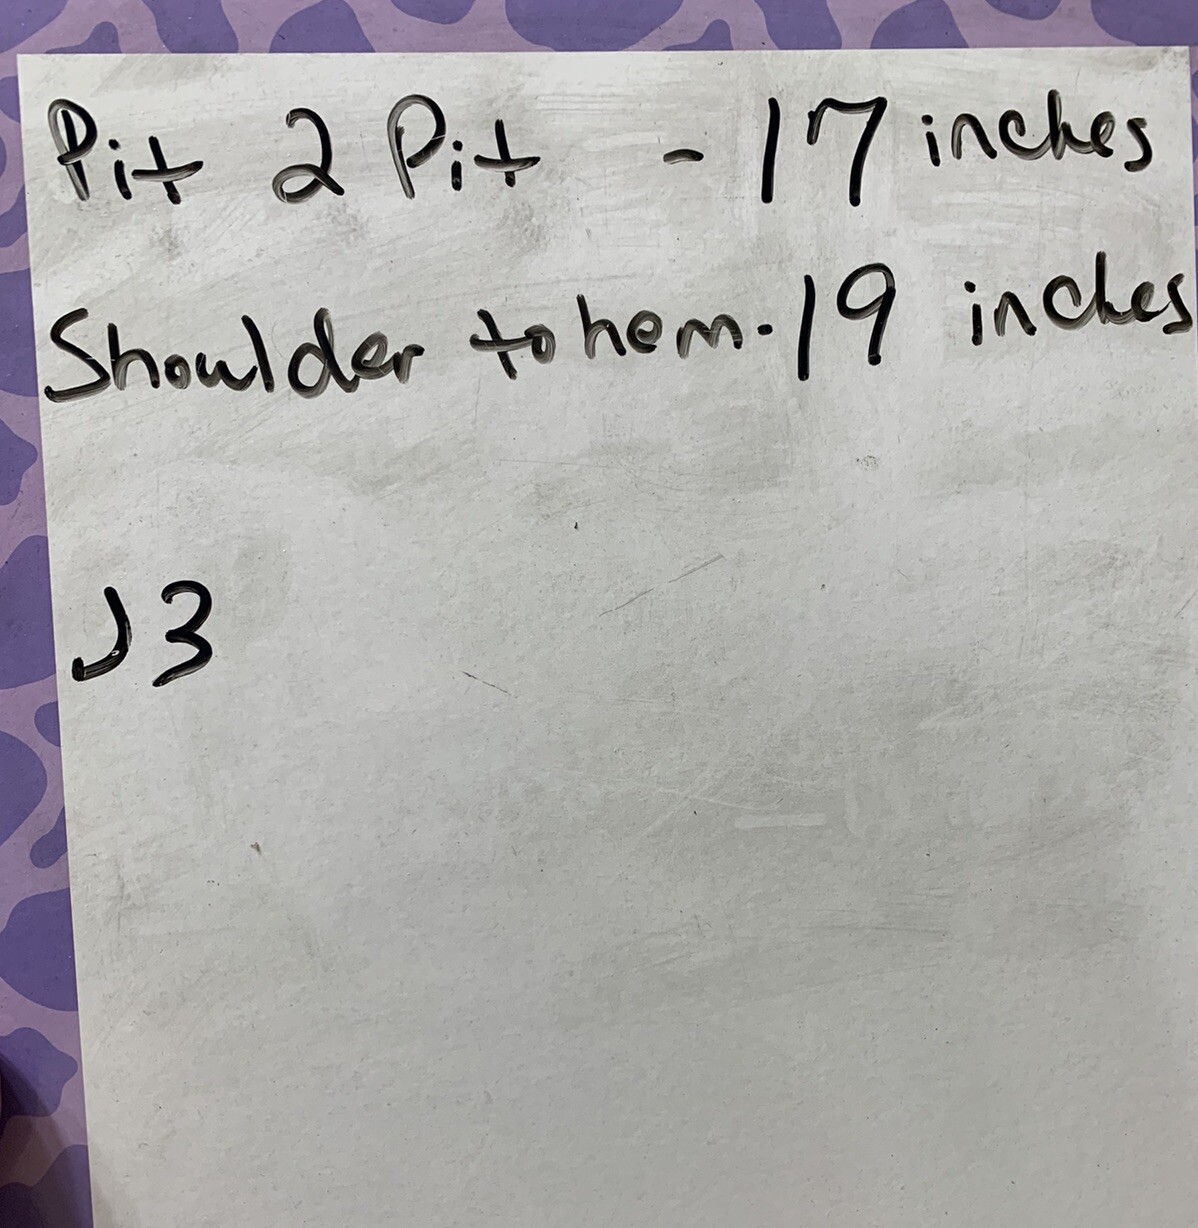 Pit 2 Pit - 17 inches
Shoulder to hem - 19 inches
J3